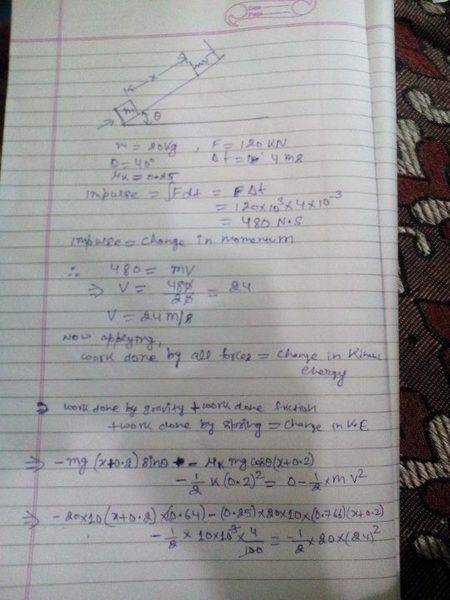 x
m
m
θ
m = 20kg, F = 120 KN
θ = 40° Δt = 4 ms
μK = 0.25
Impulse = ∫Fdt = F Δt
= 120×10³×4×10⁻³
= 480 N·S
Impulse = change in momentum
∴ 480 = mV
⇒ V = 480/20 = 24
V = 24 m/s
Now applying,
work done by all forces = change in Kinetic
Energy
⇒ work done by gravity + work done friction
+ work done by spring = change in K.E
⇒ -mg(x+0.2)sinθ - μK mg cosθ(x+0.2)
- 1/2 K(0.2)² = 0 - 1/2 × mV²
⇒ -20×10(x+0.2)×(0.64) - (0.25)×20×10×(0.766)(x+0.2)
- 1/2 × 10×10³ × 4/100 = -1/2 × 20×(24)²